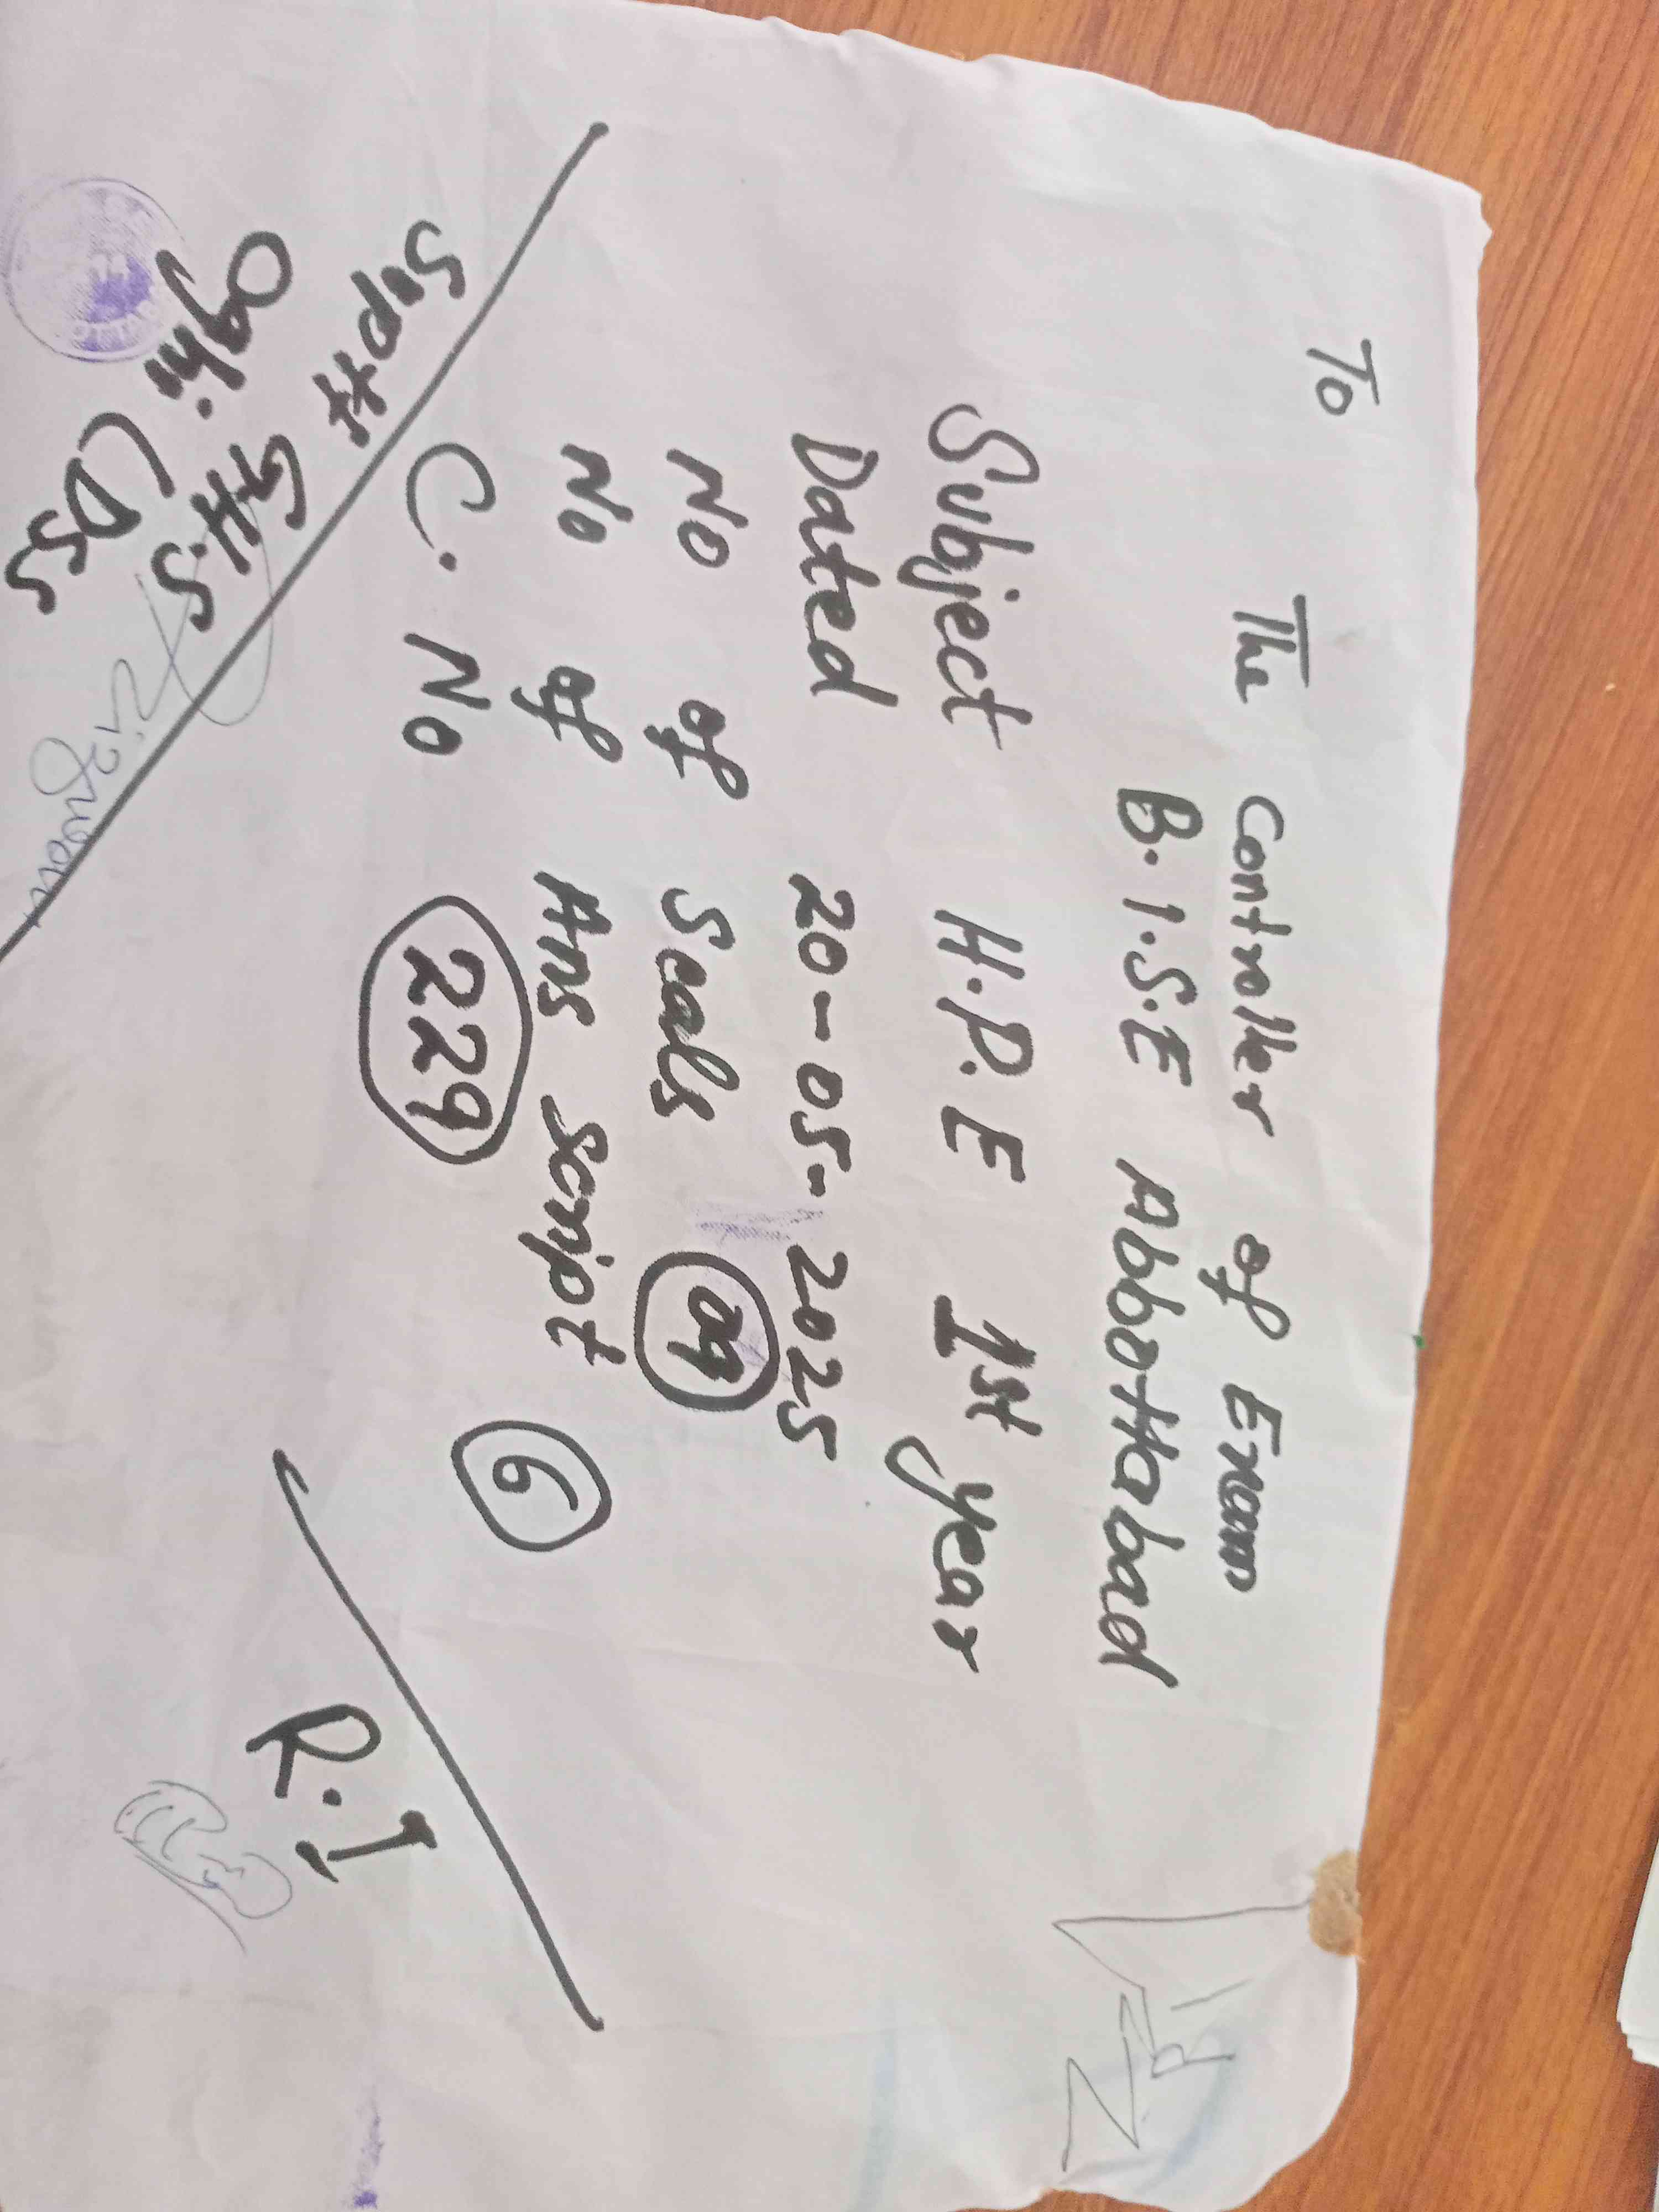 To
The Controller of Exam
B.I.S.E Abbottabad
Subject H.P.E 1st year
Dated 20-05-2025
No of Seals 09
No of Ans Script 6
C. No 229
Supdt
GHS
Oghi.
R.I